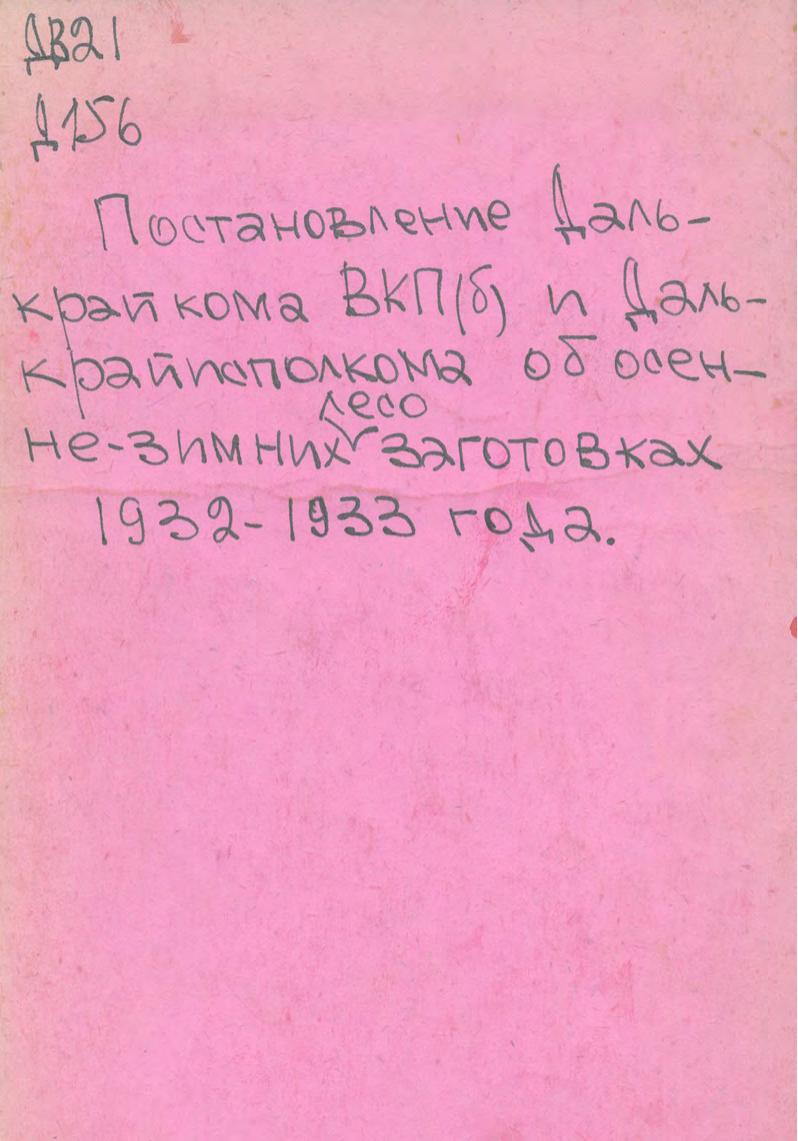 ДВ21
Д156
Постановление Даль-
крайкома ВКП(б) и Даль-
крайисполкома об осен-
лесо
не-зимних заготовках
1932-1933 года.